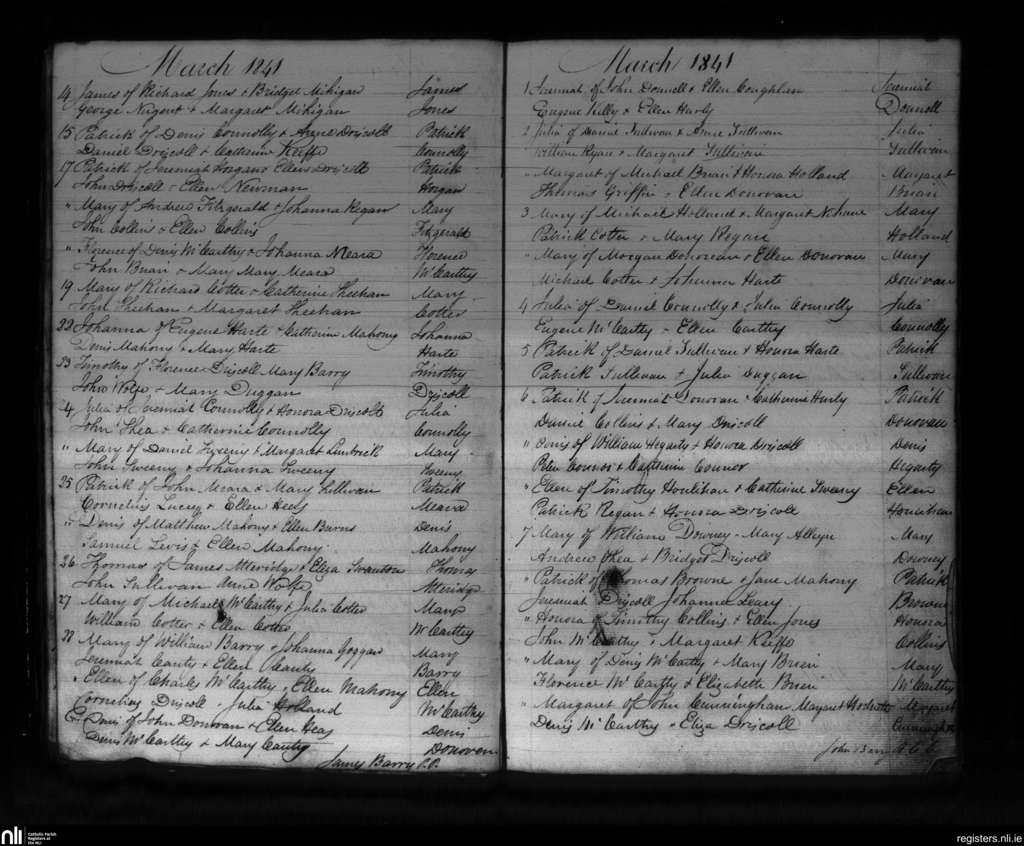 March 1841
14 James of Richard Jones & Bridget Mihigan James
George Nugent & Margaret Mihigan Jones
15 Patrick of Denis Connolly & Anne Driscoll Patrick
Daniel Driscoll & Catherine Keeffe Connolly
17 Patrick of Jeremiah Horgan & Ellen Driscoll Patrick
John Driscoll & Ellen Newman Horgan
" Mary of Andrew Fitzgerald & Johanna Regan Mary
John Collins & Ellen Collins Fitzgerald
" Florence of Denis McCarthy & Johanna Meara Florence
John Brian & Mary Mary Meara McCarthy
19 Mary of Richard Cotter & Catherine Sheehan Mary
John Sheehan & Margaret Sheehan Cotter
22 Johanna of Eugene Harte & Catherine Mahony Johanna
Denis Mahony & Mary Harte Harte
23 Timothy of Florence Driscoll Mary Barry Timothy
John Wolfe & Mary Duggan Driscoll
24 Julia of Jeremiah Connolly & Honora Driscoll Julia
John Shea & Catherine Connolly Connolly
" Mary of Daniel Sweeny & Margaret Mary
John Sweeny & Johanna Sweeny Sweeny
25 Patrick of John Meara & Mary Sullivan Patrick
Cornelius Lucey & Ellen Heas Meara
" Denis of Matthew Mahony & Ellen Burns Denis
Samuel Levis & Ellen Mahony Mahony
26 Thomas of James Atteridge & Eliza Swanton Thomas
John Sullivan Anne Wolfe Atteridge
27 Mary of Michael McCarthy & Julia Cotter Mary
William Cotter & Ellen Cotter McCarthy
28 Mary of William Barry & Johanna Goggan Mary
Jeremiah Canty & Ellen Canty Barry
" Ellen of Charles McCarthy & Ellen Mahony Ellen
Cornelius Driscoll & Julia Holland McCarthy
Denis of John Donovan & Ellen Heas Denis
Denis McCarthy & Mary Canty Donoven
James Barry P.P.
March 1841
1 Jeremiah of John Donnell & Ellen Coughlan Jeremiah
Eugene Kelly & Ellen Hurly Donnell
2 Julia of Daniel Sullivan & Anne Sullivan Julia
William Ryan & Margaret Sullivan Sullivan
" Margaret of Michael Brian & Honora Holland Margaret
Thomas Griffin & Ellen Donovan Brian
3 Mary of Michael Holland & Margaret Mary
Patrick Cotter & Mary Regan Holland
" Mary of Morgan Donovan & Ellen Donovan Mary
Michael Cotter & Johanna Harte Donovan
4 Julia of Daniel Connolly & Julia Connolly Julia
Eugene McCarthy & Ellen Carthy Connolly
5 Patrick of Daniel Sullivan & Honora Harte Patrick
Patrick Sullivan & Julia Duggan Sullivan
6 Patrick of Jeremiah Donovan & Catherine Hurly Patrick
Daniel Collins & Mary Driscoll Donovan
" Denis of William Hegarty & Honora Driscoll Denis
Peter Connor & Catherine Connor Hegarty
" Ellen of Timothy Hourihan & Catherine Sweeny Ellen
Patrick Regan & Honora Driscoll Hourihan
7 Mary of William Downey & Mary Mary
Andrew Shea & Bridget Driscoll Downey
" Patrick of Thomas Browne & Jane Mahony Patrick
Jeremiah Driscoll Johanna Leary Browne
" Honora of Timothy Collins & Ellen Jones Honora
John McCarthy & Margaret Keeffe Collins
" Mary of Denis McCarthy & Mary Brien Mary
Florence McCarthy & Elizabeth Brien McCarthy
" Margaret of John Cunningham Margaret Margaret
Denis McCarthy & Eliza Driscoll Cunningham
John Barry
nli Catholic Parish
Registers at
the NLI
registers.nli.ie